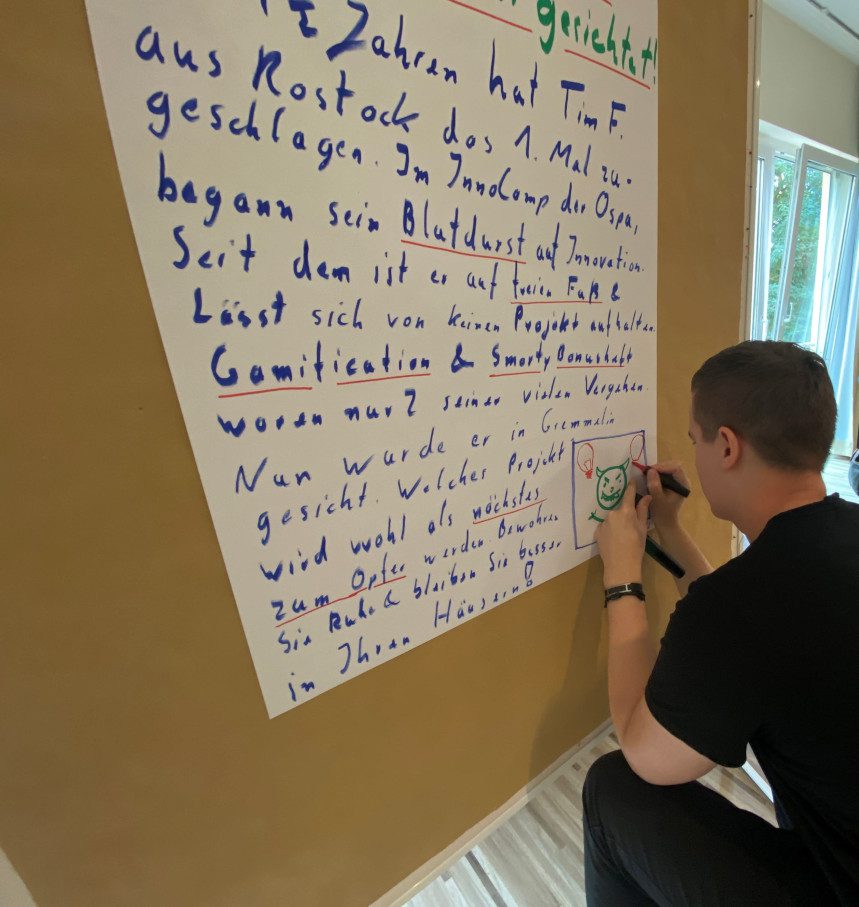 gerichtet!
Jahren hat Tim F.
aus Rostock das 1. Mal zu-
geschlagen. Im InnoCamp der Ospa,
begann sein Blutdurst auf Innovation.
Seit dem ist er auf freien Fuß &
Lässt sich von keinen Projekt aufhalten.
Gamification & Smarty Bonusheft
waren nur 2 seiner vielen Vergehen.
Nun wurde er in Gremmelin
gesicht. Welches Projekt
wird wohl als nächstes
zum Opfer werden Bewahren
Sie Ruhe & bleiben Sie besser
in Ihren Häusern!